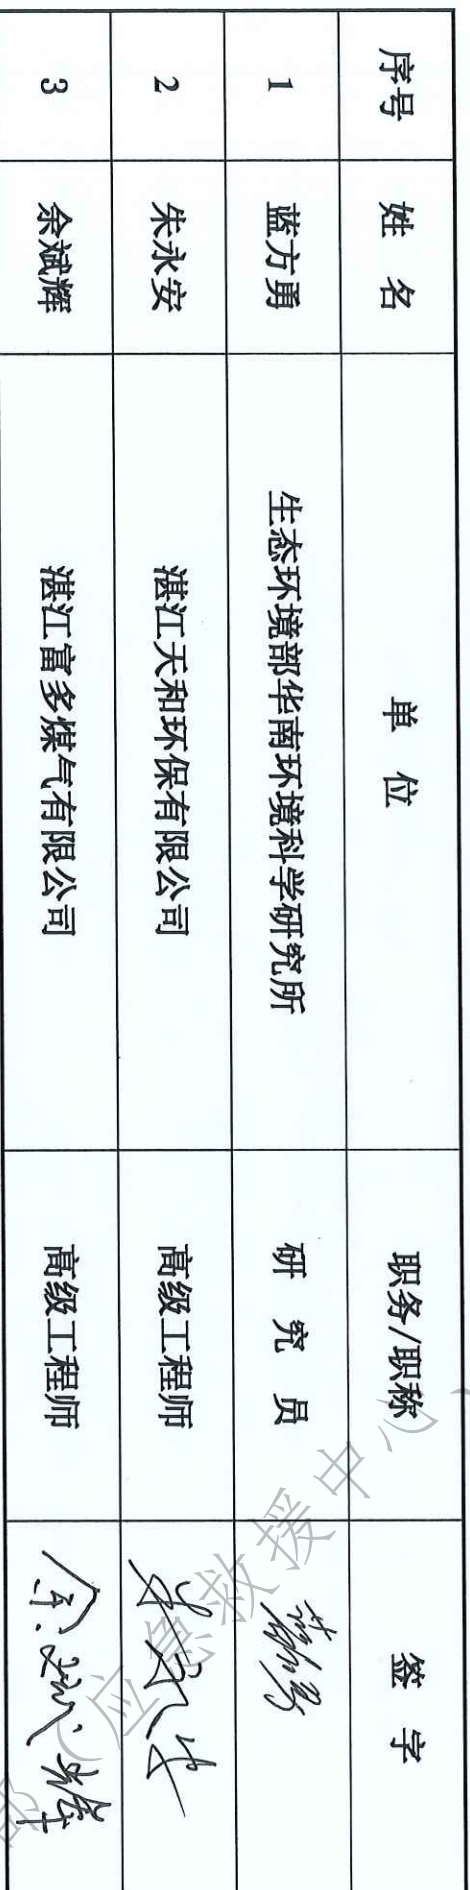 序号 姓 名 单 位 职务/职称 签 字
1 蓝方勇 生态环境部华南环境科学研究所 研 究 员 蓝方勇
2 朱永安 湛江天和环保有限公司 高级工程师 朱永安
3 余斌辉 湛江富多煤气有限公司 高级工程师 余斌辉
部(应急救援中心)